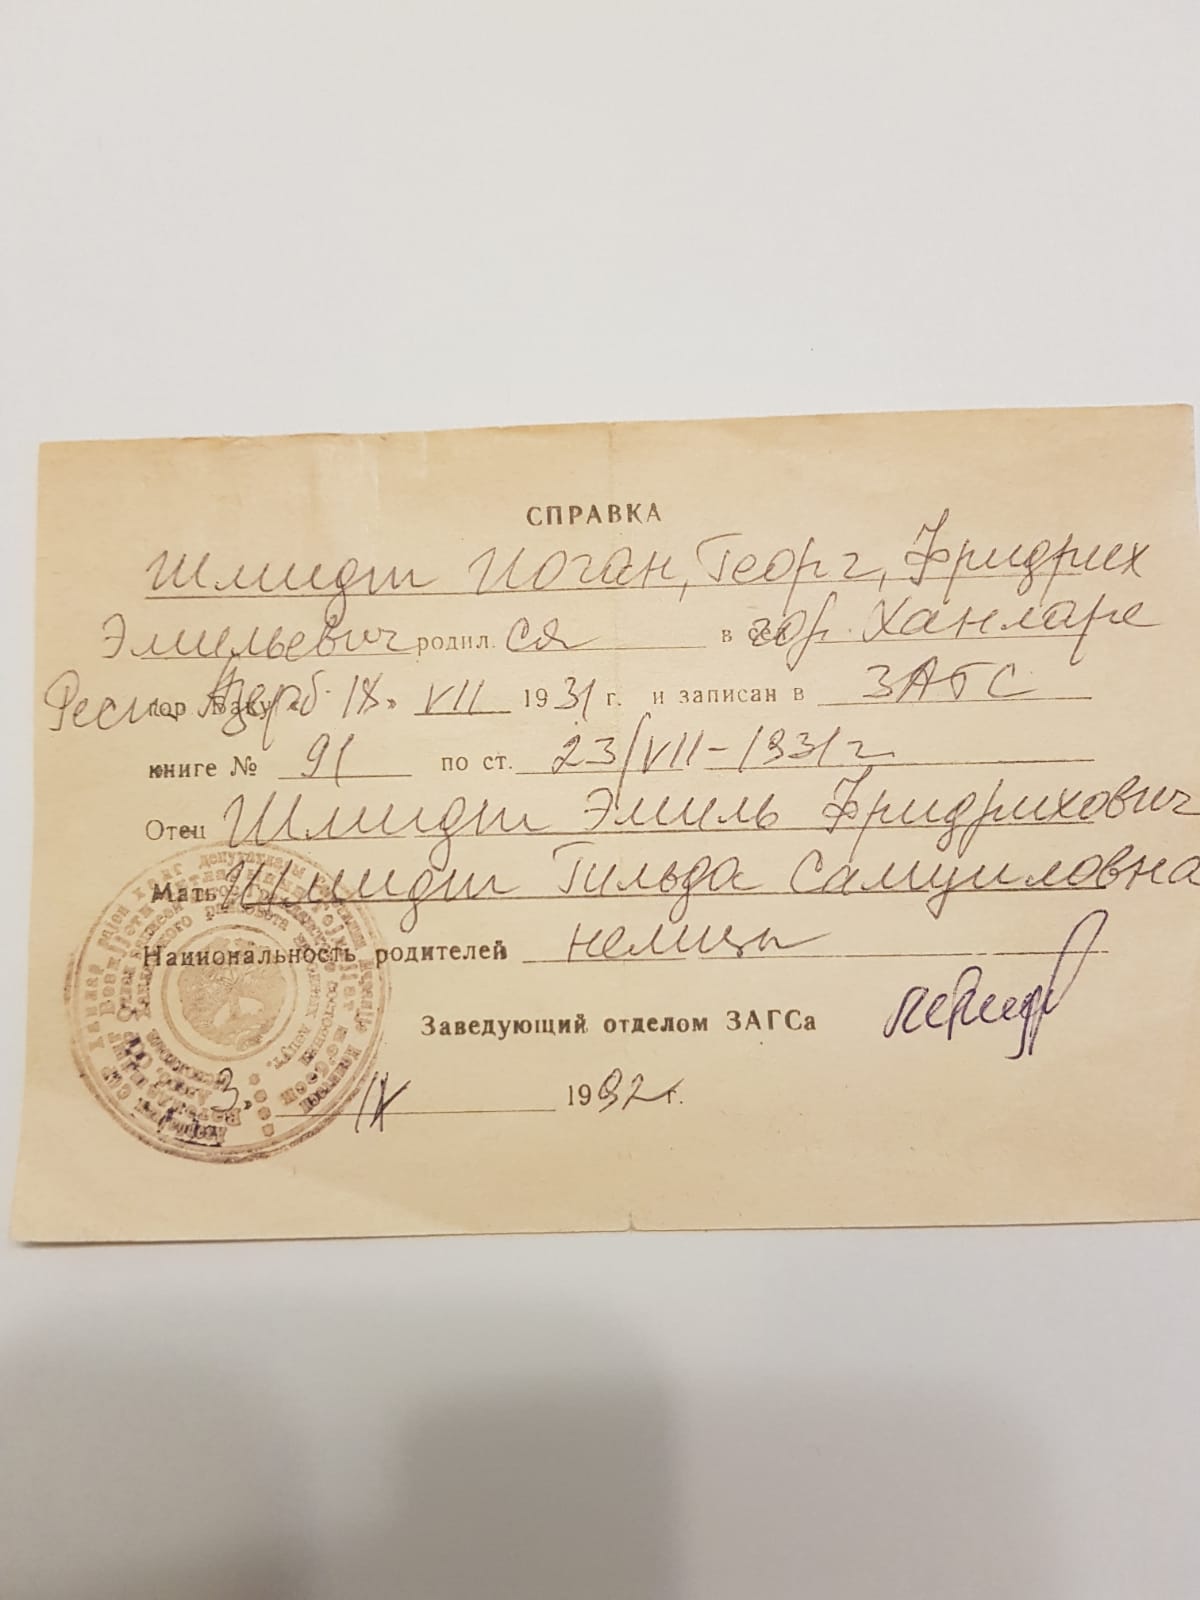 СПРАВКА
Шмидт Иоган, Георг, Фридрих
Эмильевич родил. ся в гор. Ханларе
Респ. Азерб. 18» VII 1931 г. и записан в ЗАГС
книге № 91 по ст. 23/VII-1931 г
Отец Шмидт Эмиль Фридрихович
Мать Шмидт Гильда Самуиловна
Национальность родителей немцы
Заведующий отделом ЗАГСа
3. IX 1992 г.